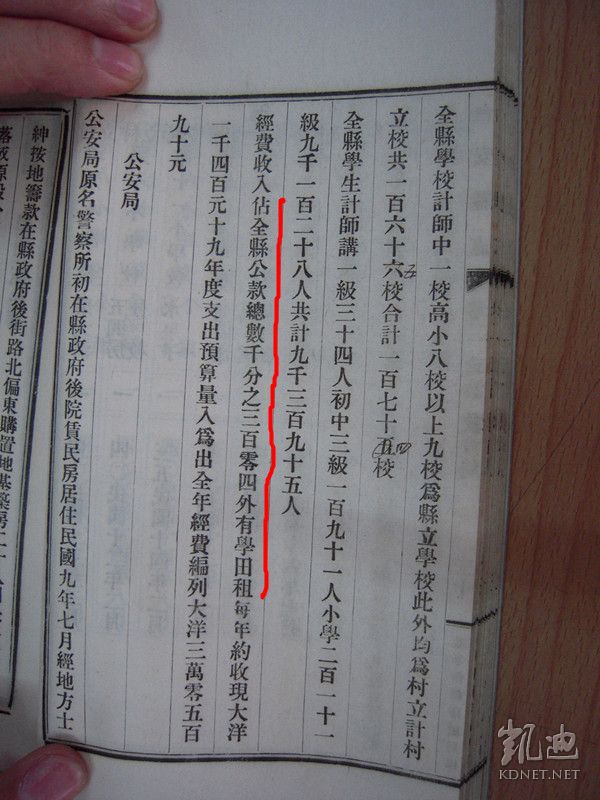 全縣學校計師中一校高小八校以上九校爲縣立學校此外均爲村立計村
立校共一百六十六五校合計一百七十五四校
全縣學生計師講一級三十四人初中三級一百九十一人小學二百一十一
級九千一百二十八人共計九千三百九十五人
經費收入佔全縣公款總數千分之三百零四外有學田租每年約收現大洋
一千四百元十九年度支出預算量入爲出全年經費編列大洋三萬零五百
九十元
公安局
公安局原名警察所初在縣政府後院賃民房居住民國九年七月經地方士
紳按地籌款在縣政府後街路北偏東購置地基築房二十
凯迪
KDNET.NET